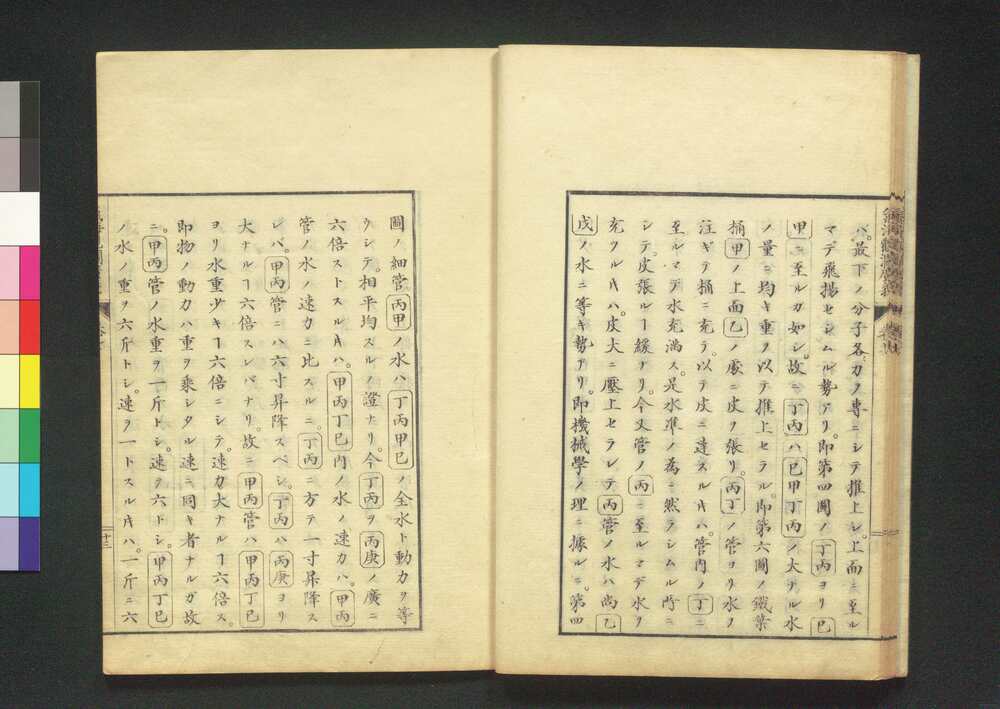 バ。最下ノ分子各力ノ専ニシテ推上シ。上面ニ至ル
マデ飛揚セシムル勢アリ。即第四圖ノ丁丙ヨリ巳
甲ニ至ルガ如シ。故ニ丁丙ハ巳甲丁丙ノ大ナル水
ノ量ニ均キ重ヲ以テ推上セラル。即第六圖ノ鐵葉
桶甲ノ上面乙ノ處ニ皮ヲ張リ。丙丁ノ管ヨリ水ヲ
注ギテ桶ニ充テ。以テ皮ニ達スル𪜈ハ。管内ノ丁ニ
至ルマデ水充満ス。是水準ノ為ニ然ラシムル所ニ
シテ。皮張ルヿ緩ナリ。今又管ノ丙ニ至ルマデ水ヲ
充ツル𪜈ハ。皮大ニ壓上セラレテ丙管ノ水ハ尚乙
戊ノ水ニ等キ勢アリ。即機械學ノ理ニ據ルニ。第四
圖ノ細管丙甲ノ水ハ丁丙甲巳ノ全水ト動力ヲ等
クシテ。相平均スルノ證ナリ。今丁丙ヲ丙庚ノ廣ニ
六倍ストスル𪜈ハ。甲丙丁巳内ノ水ノ速力ハ。甲丙
管ノ水ノ速力ニ比スルニ。丁丙ニ方テ一寸昇降ス
レバ。甲丙管ニハ六寸昇降スベシ。丁丙ハ丙庚ヨリ
大ナルヿ六倍スレバナリ。故ニ甲丙管ハ甲丙丁巳
ヨリ水重少キヿ六倍ニシテ。速力大ナルヿ六倍ス。
即物ノ動力ハ重ヲ乘シタル速ニ同キ者ナルガ故
ニ。甲丙管ノ水重ヲ一斤トシ。速ヲ六トシ。甲丙丁巳
ノ水ノ重ヲ六斤トシ。速ヲ一トスル𪜈ハ。一斤ニ六
十三